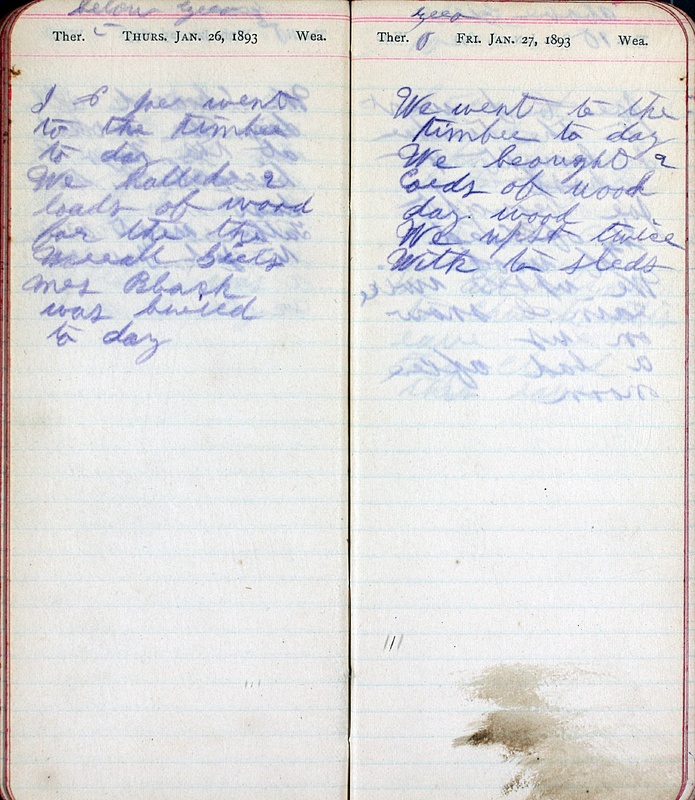 below zero
Ther. 5 THURS. JAN. 26, 1893 Wea.
I & pe went
to the timber
to day
We halled 2
loads of wood
for the the
Mrs Blash
was buried
to day
zero
Ther. 0 FRI. JAN. 27, 1893 Wea.
We went to the
timber to day
We brought 2
loeds of wood
day. wood
We upst twice
With to sleds